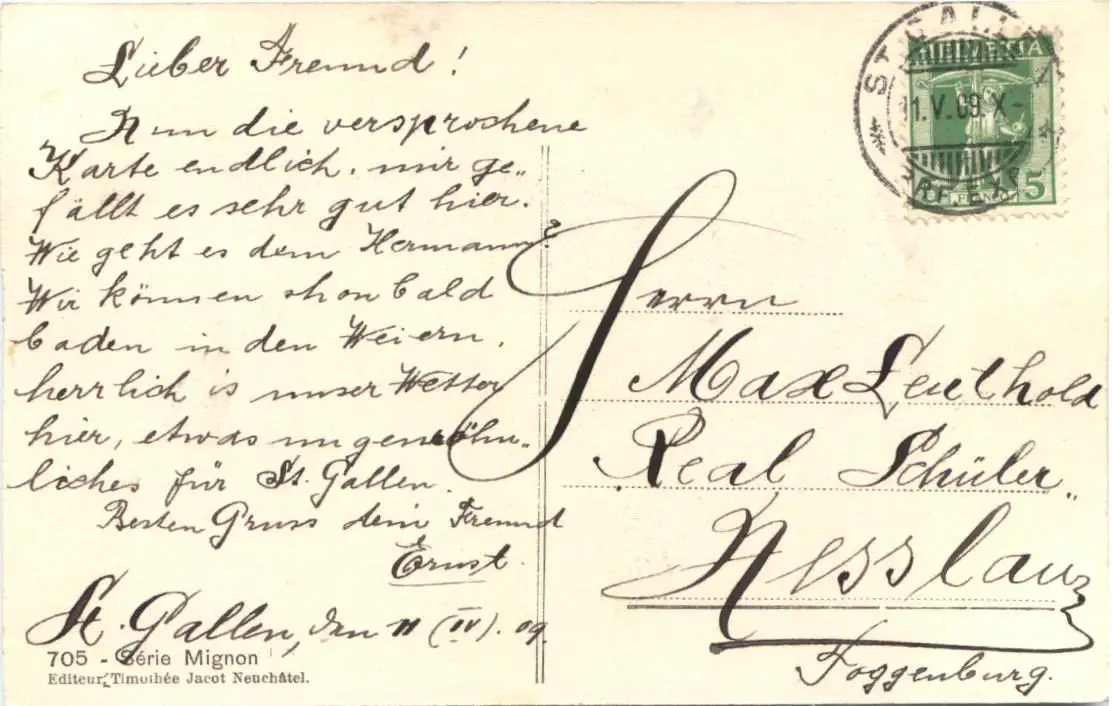 Lieber Freund!
Nun die versprochene
Karte endlich. mir ge„
fällt es sehr gut hier.
Wie geht es dem Hermann?
Wir können shon bald
baden in den Weiern,
herrlich is unser Wetter
hier, etwas ungewöhn„
liches für St. Gallen.
Besten Gruss dein Freund
Ernst.
St. Gallen, den 11 (IV). 09.
705 - Série Mignon
Editeur, Timothée Jacot Neuchâtel.
ST. GALLEN
HELVETIA
11.V.09.X-
BRF. EXP.
5
Herrn
Max Leuthold
Real Schüler„
Nesslau
Toggenburg.